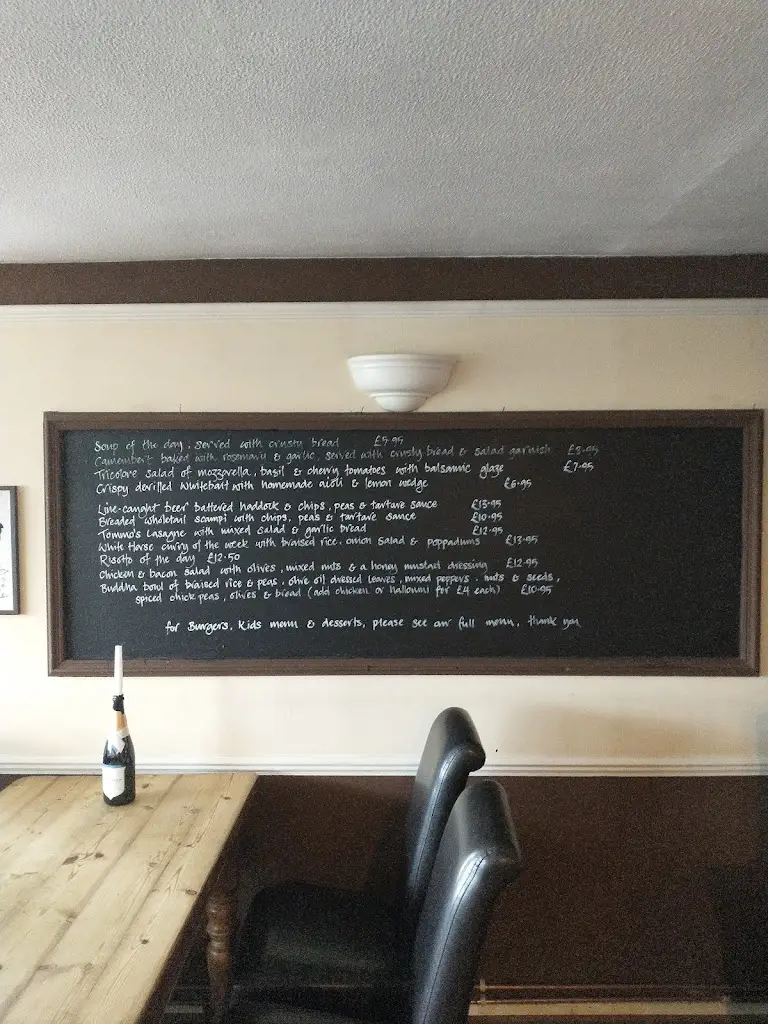 Soup of the day, served with crusty bread £5.95
Camembert baked with rosemary & garlic, served with crusty bread & salad garnish
Tricolore salad of mozzarella, basil & cherry tomatoes with balsamic glaze £7.95
Crispy devilled Whitebait with homemade aioli & lemon wedge £6.95
Line-caught beer battered haddock & chips, peas & tartare sauce £13.95
Breaded wholetail scampi with chips, peas & tartare sauce £10.95
Tommo's Lasagne with mixed salad & garlic bread £12.95
White Horse curry of the week with braised rice, onion salad & poppadums £13.95
Risotto of the day £12.50
Chicken & bacon salad with olives, mixed nuts & a honey mustard dressing £12.95
Buddha bowl of braised rice & peas, olive oil dressed leaves, mixed peppers, nuts & seeds,
spiced chick peas, olives & bread (add chicken or halloumi for £4 each) £10.95
for Burgers, Kids menu & desserts, please see our full menu, thank you